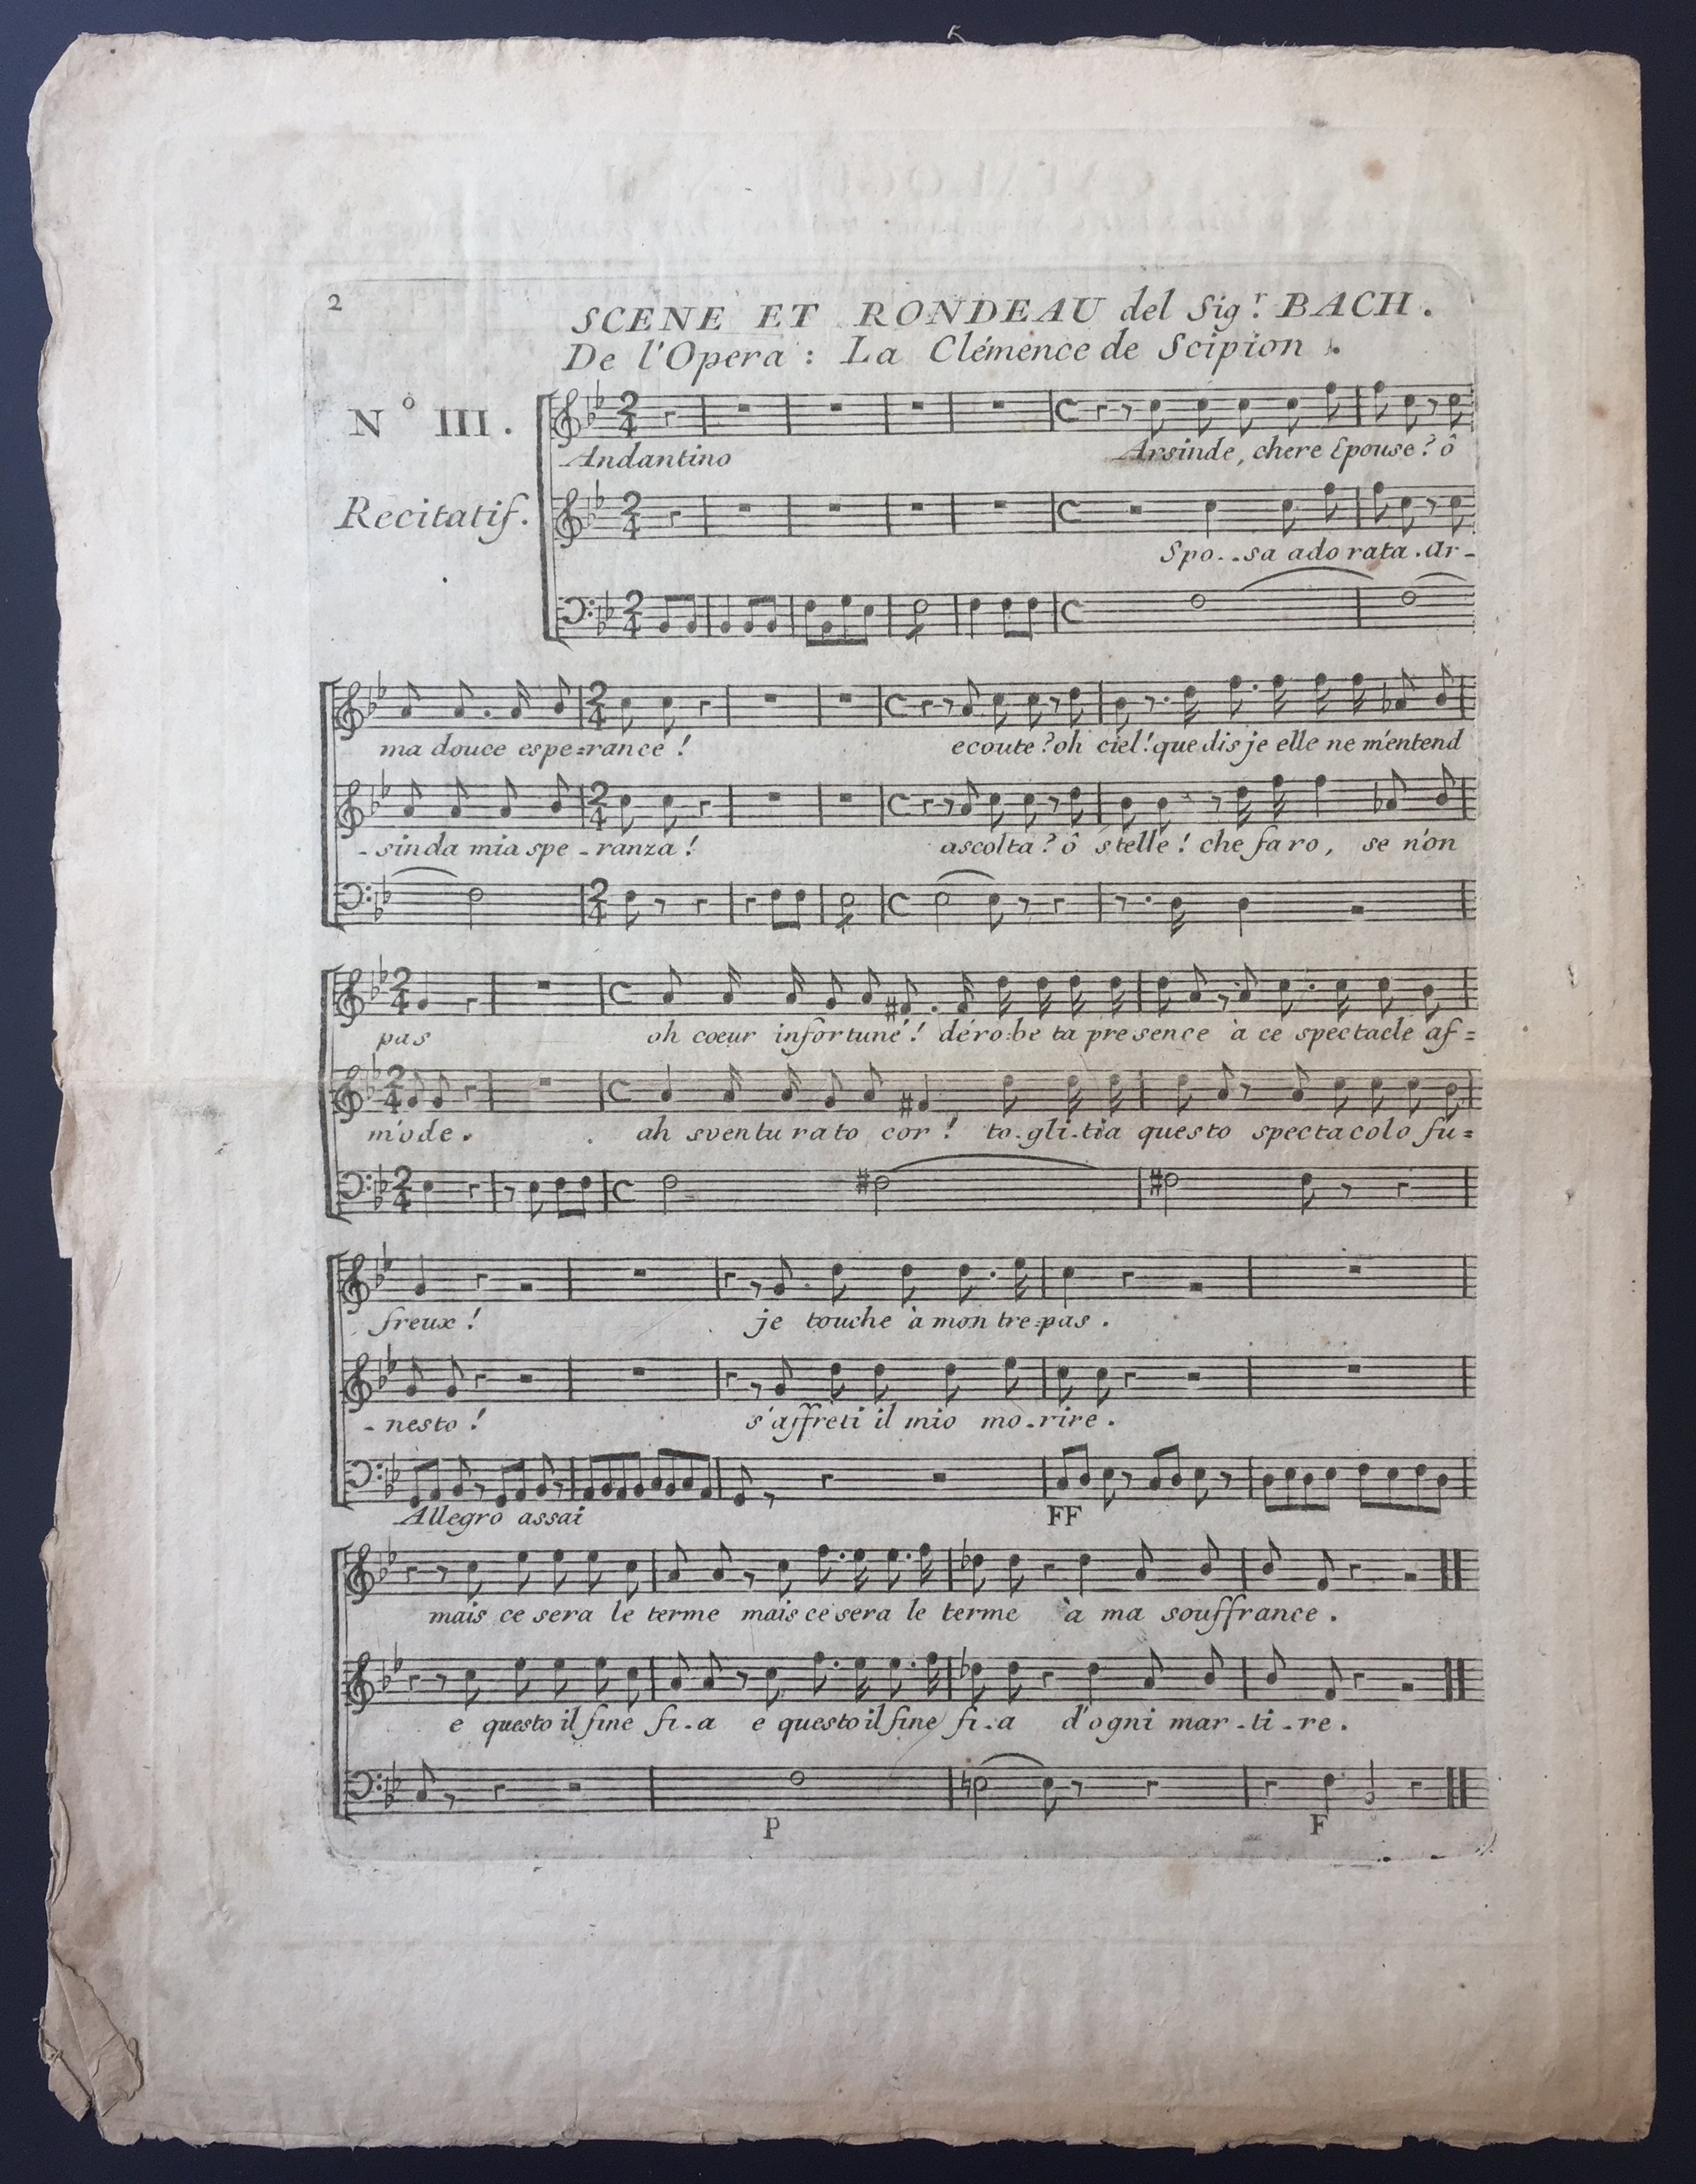 2
SCENE ET RONDEAU del Sig.r BACH.
De l'Opera : La Clémence de Scipion.
N.o III.
Andantino
Arsinde, chere Epouse? ô
Recitatif.
Spo..sa ado rata. Ar-
ma douce espe=rance!
ecoute? oh ciel! que dis je elle ne m'entend
-sinda mia spe-ranza!
ascolta? ô stelle! che faro, se n'on
pas
oh cœur infortuné! déro:be ta presence à ce spectacle af=
m'ode.
ah sventu rato cor! to-gli-tia questo spectacolo fu=
freux!
je touche à mon tre=pas.
-nesto!
s'affreti il mio mo-rire.
Allegro assai
FF
mais ce sera le terme mais ce sera le terme à ma souffrance.
e questo il fine fi-a e questo il fine fi-a d'ogni mar-ti-re.
P
F